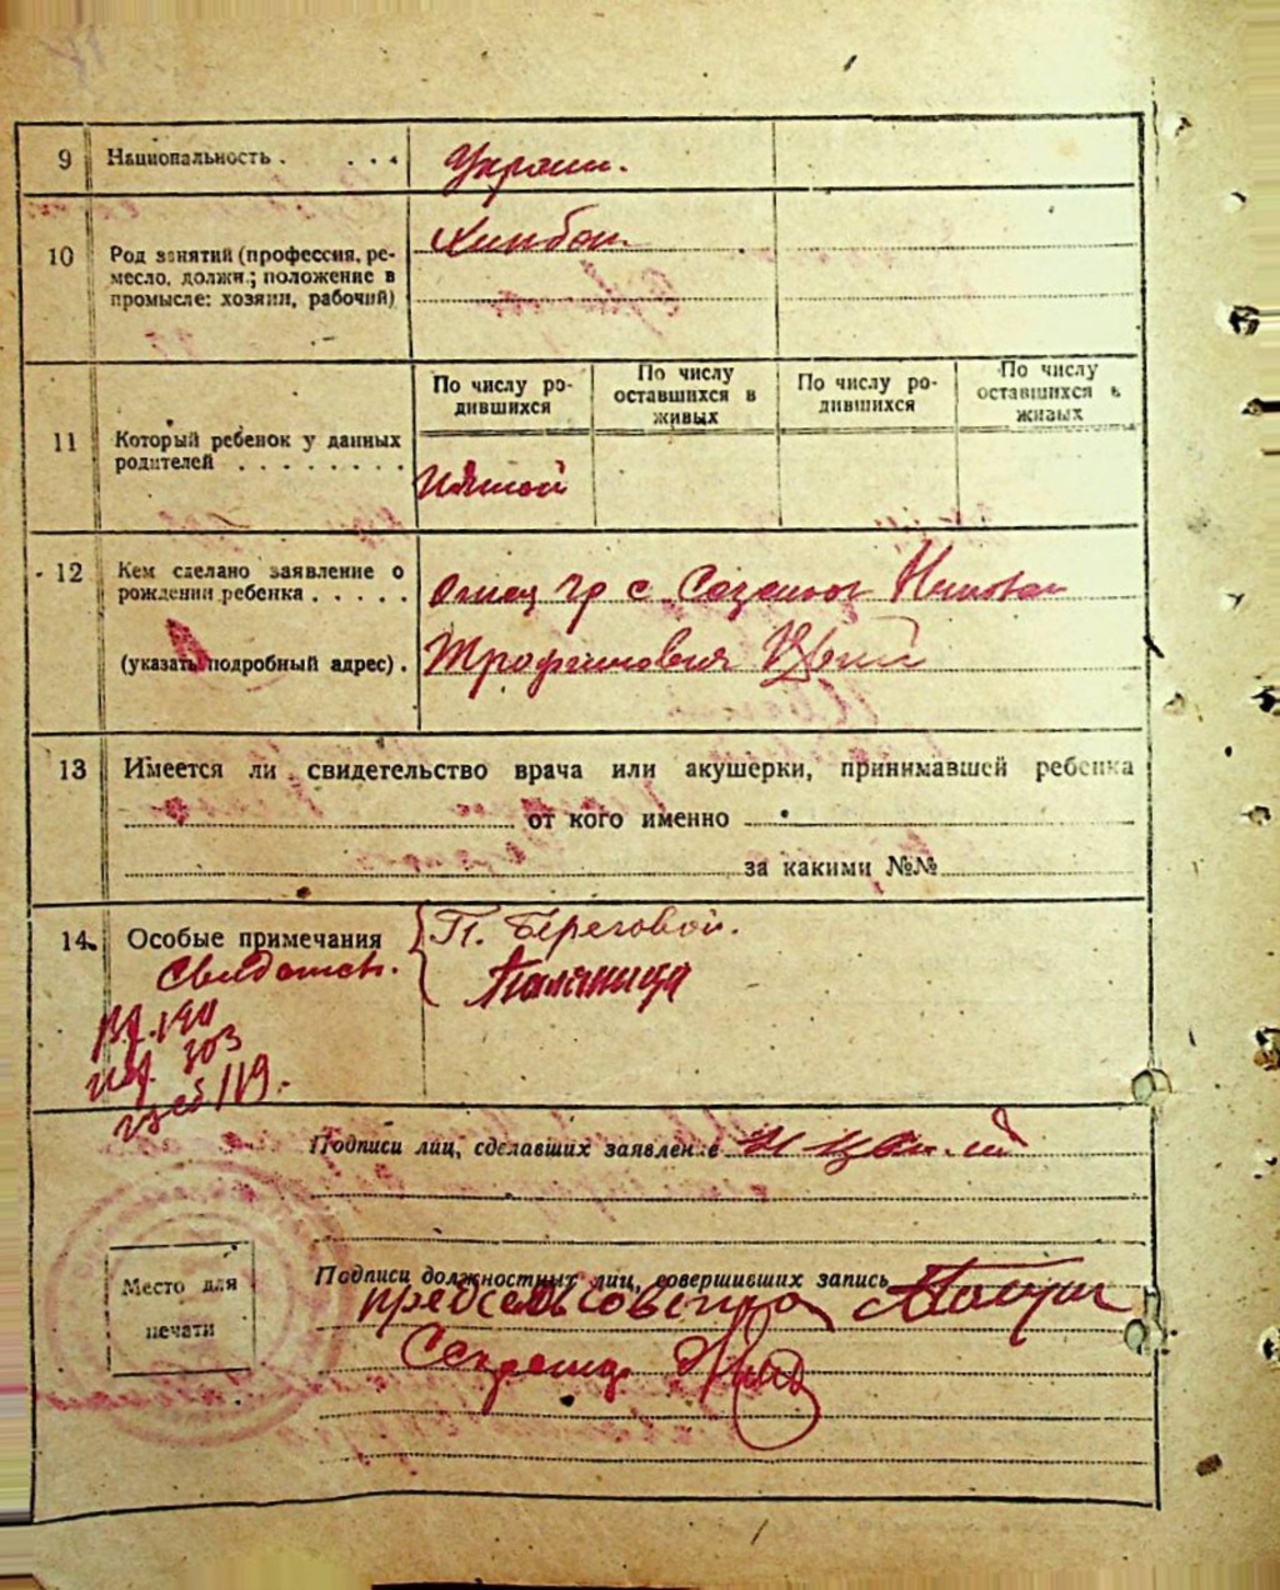 9 Национальность . . . . Украин.
10 Род занятий (профессия, ре-
месло, должн.; положение в
промысле: хозяин, рабочий)
Хлибоп.
11 Который ребенок у данных
родителей . . . . . . . .
По числу ро-
дившихся
По числу
оставшихся в
живых
По числу ро-
дившихся
По числу
оставшихся в
живых
12 Кем сделано заявление о
рождении ребенка . . . . .
(указать подробный адрес) .
Отец гр с
Трофимович Цвий
13 Имеется ли свидетельство врача или акушерки, принимавшей ребенка
от кого именно
за какими №№
14. Особые примечания
Свидетел.
П. Береговой.
Паляница
303
119
Подписи лиц, сделавших заявление
Подписи должностных лиц, совершивших запись
предсельсовета
Секретар
Место для
печати